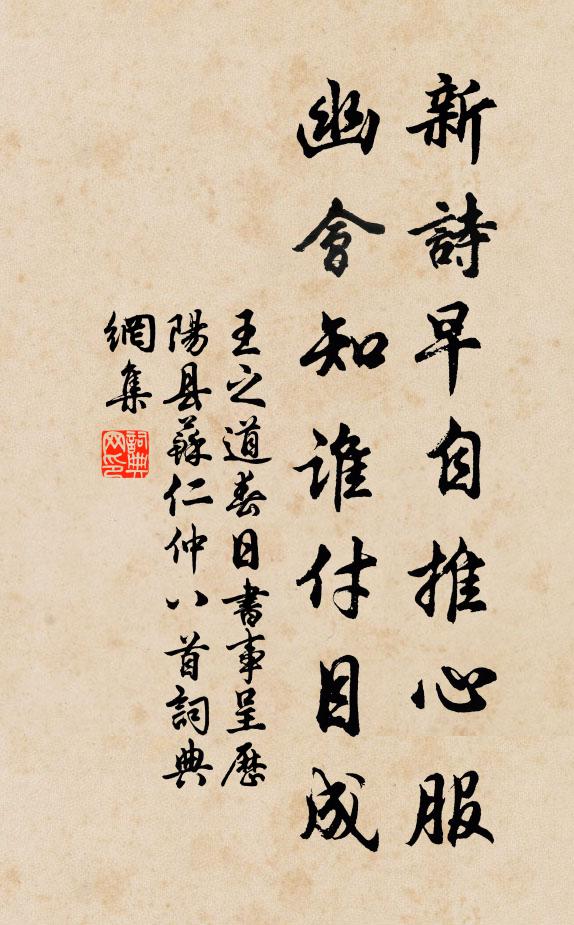 新詩早自推心服
幽會知誰付目成
王之道春日書事呈歷
陽县蘇仁仲八首詞典
網集
詞典
网印